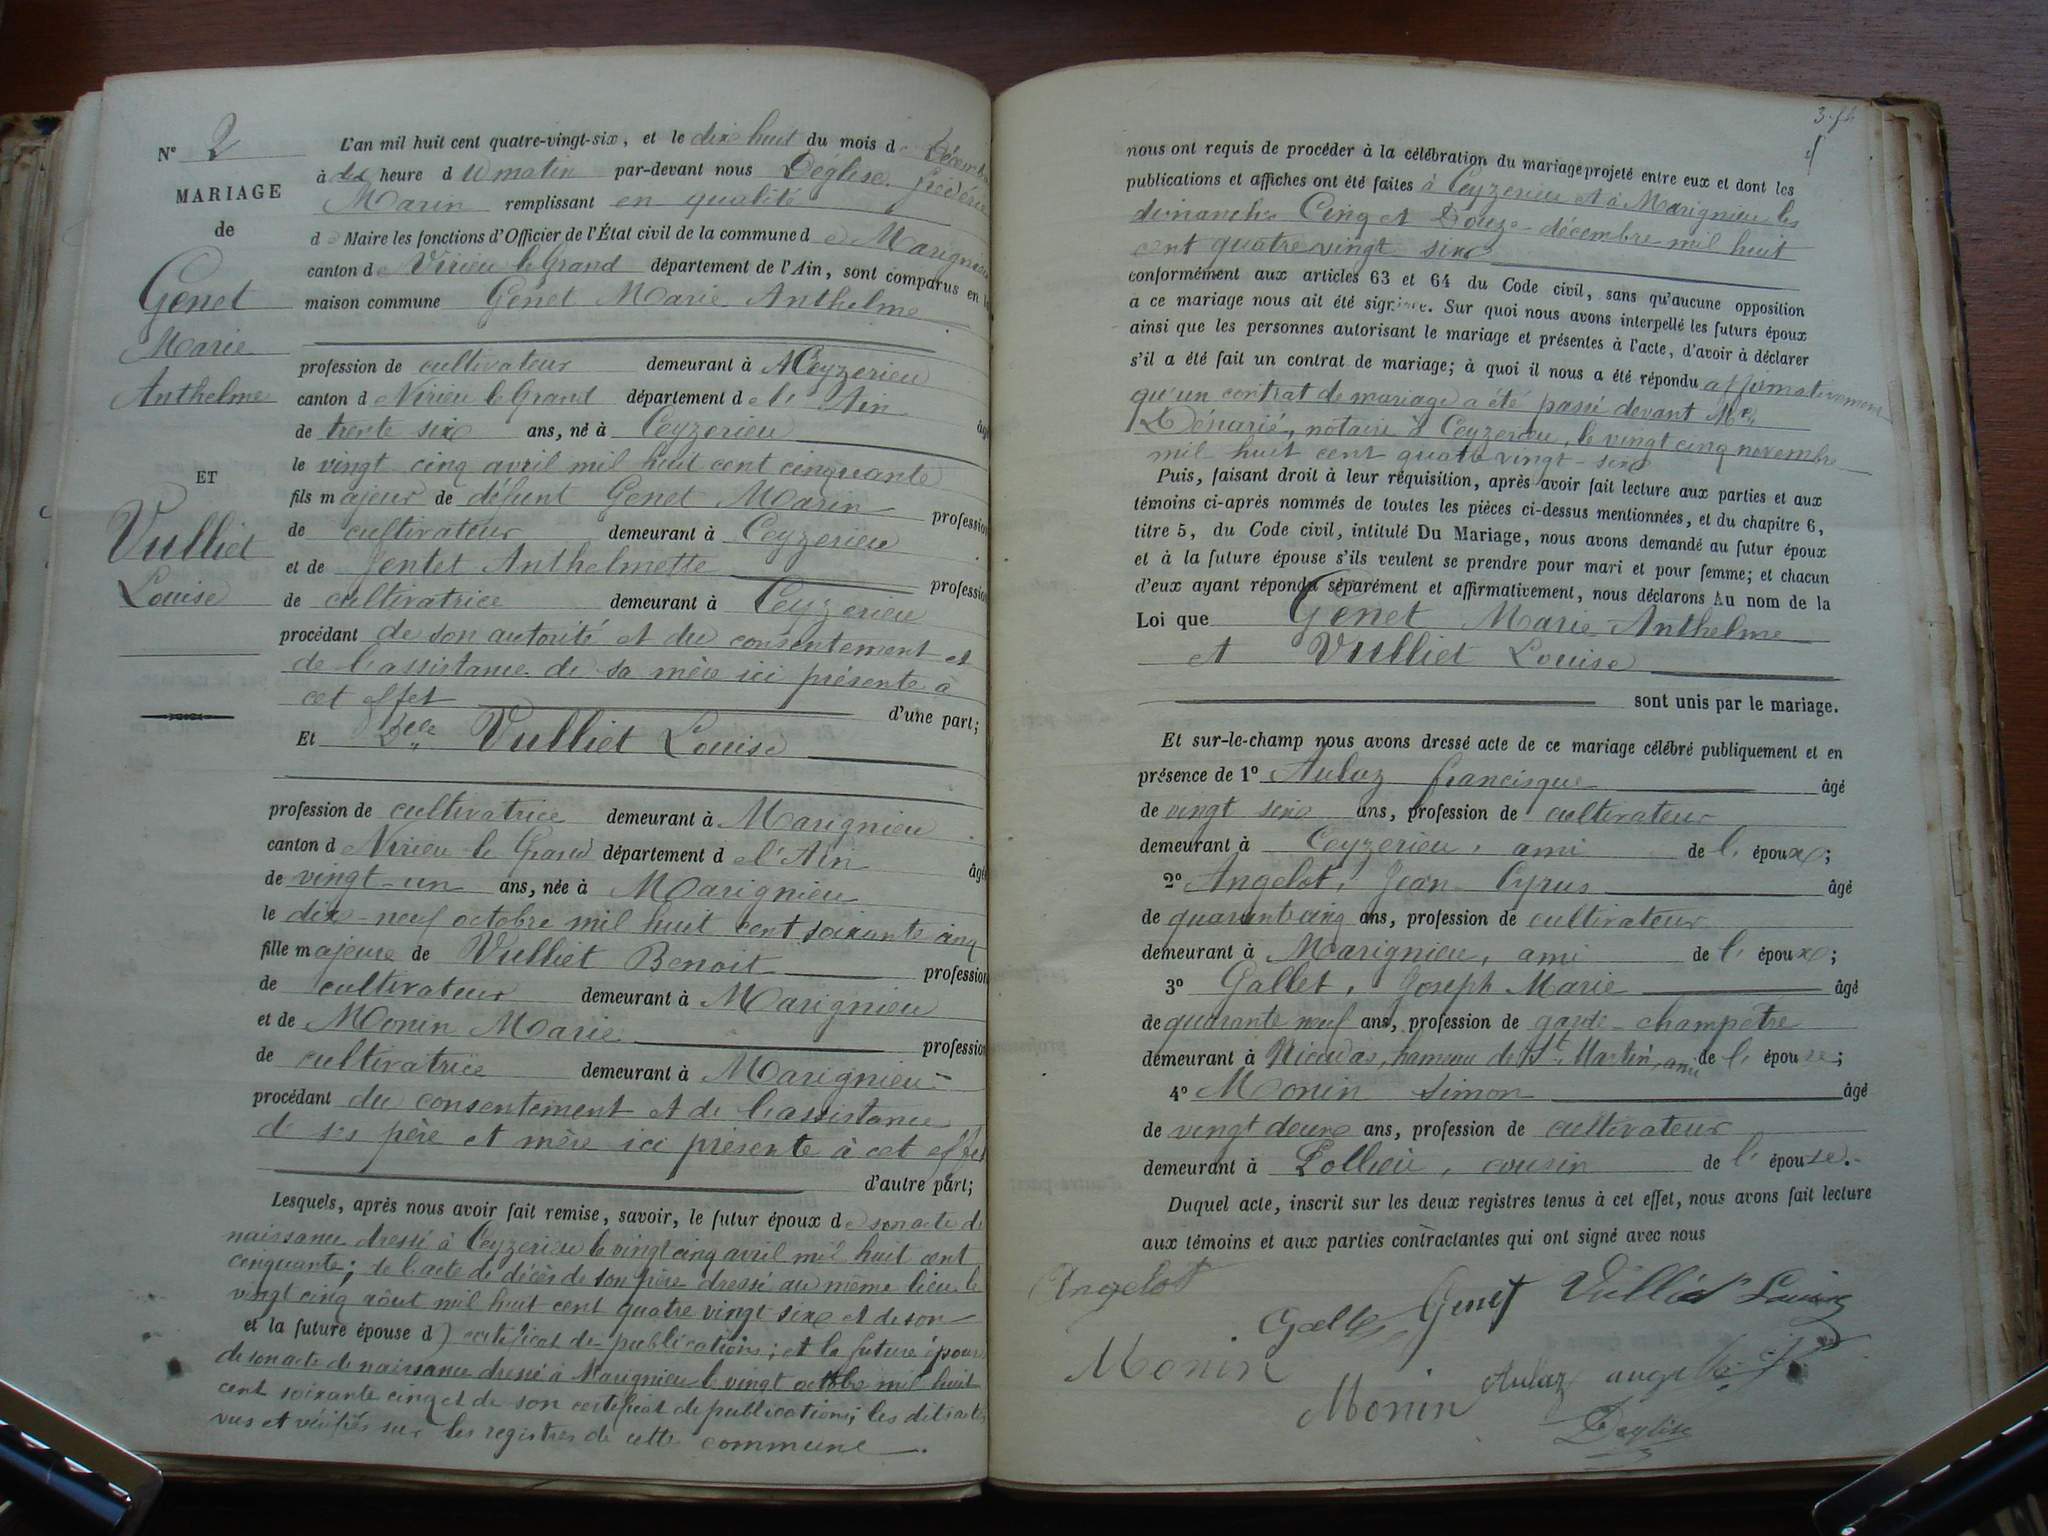 N° 2
MARIAGE
de
Genet
Marie
Anthelme
ET
Vulliet
Louise
L'an mil huit cent quatre-vingt-six, et le dix huit du mois de Décembre
à dix heure du matin par-devant nous Déglise Frédéric
Marin remplissant en qualité
de Maire les fonctions d'Officier de l'État civil de la commune de Marignieu
canton de Virieu le Grand département de l'Ain, sont comparus en la
maison commune Genet Marie Anthelme
profession de cultivateur demeurant à Ceyzerieu
canton d Virieu le Grand département de l'Ain
âgé
de trente six ans, né à Ceyzerieu
le vingt cinq avril mil huit cent cinquante
fils majeur de défunt Genet Marin profession
de cultivateur demeurant à Ceyzerieu
et de Jentet Anthelmette profession
de cultivatrice demeurant à Ceyzerieu
procédant de son autorité et du consentement et
de l'assistance de sa mère ici présente à
cet effet d'une part;
Et Delle Vulliet Louise
profession de cultivatrice demeurant à Marignieu
canton d Virieu le Grand département de l'Ain âgée
de vingt-un ans, née à Marignieu
le dix-neuf octobre mil huit cent soixante cinq
fille majeure de Vulliet Benoit profession
de cultivateur demeurant à Marignieu
et de Monin Marie profession
de cultivatrice demeurant à Marignieu
procédant du consentement et de l'assistance
de ses père et mère ici présente à cet effet
d'autre part;
Lesquels, après nous avoir fait remise, savoir, le futur époux de son acte de
naissance dressé à Ceyzerieu le vingt cinq avril mil huit cent
cinquante; de l'acte de décès de son père dressé au même lieu le
vingt cinq août mil huit cent quatre vingt six et de son
et la future épouse d) certificat de publications; et la future épouse
de son acte de naissance dressé à Marignieu le vingt octobre mil huit
cent soixante cinq et de son certificat de publications; les dits actes
vus et vérifiés sur les registres de cette commune.
nous ont requis de procéder à la célébration du mariage projeté entre eux et dont les
publications et affiches ont été faites à Ceyzerieu et à Marignieu les
dimanche Cinq et Douze décembre mil huit
cent quatre vingt six
conformément aux articles 63 et 64 du Code civil, sans qu'aucune opposition
à ce mariage nous ait été signifiée. Sur quoi nous avons interpellé les futurs époux
ainsi que les personnes autorisant le mariage et présentes à l'acte, d'avoir à déclarer
s'il a été fait un contrat de mariage; à quoi il nous a été répondu affirmativement
qu'un contrat de mariage a été passé devant Me
Dénarié, notaire à Ceyzerieu, le vingt cinq novembre
mil huit cent quatre vingt-six
Puis, faisant droit à leur réquisition, après avoir fait lecture aux parties et aux
témoins ci-après nommés de toutes les pièces ci-dessus mentionnées, et du chapitre 6,
titre 5, du Code civil, intitulé Du Mariage, nous avons demandé au futur époux
et à la future épouse s'ils veulent se prendre pour mari et pour femme; et chacun
d'eux ayant répondu séparément et affirmativement, nous déclarons Au nom de la
Loi que Genet Marie Anthelme
et Vulliet Louise
sont unis par le mariage.
Et sur-le-champ nous avons dressé acte de ce mariage célébré publiquement et en
présence de 1° Aubaz Francisque âgé
de vingt six ans, profession de cultivateur
demeurant à Ceyzerieu, ami de l' époux;
2° Angelot, Jean Cyrus âgé
de quarante cinq ans, profession de cultivateur
demeurant à Marignieu, ami de l' époux;
3° Gallet, Joseph Marie âgé
de quarante neuf ans, profession de garde-champêtre
demeurant à hameau de St Martin, ami de l' épouse;
4° Monin Simon âgé
de vingt deux ans, profession de cultivateur
demeurant à Pollieu, cousin de l' épouse.
Duquel acte, inscrit sur les deux registres tenus à cet effet, nous avons fait lecture
aux témoins et aux parties contractantes qui ont signé avec nous
Angelot
Gallet Genet Vulliet Louise
Monin
Monin Aubaz
Déglise